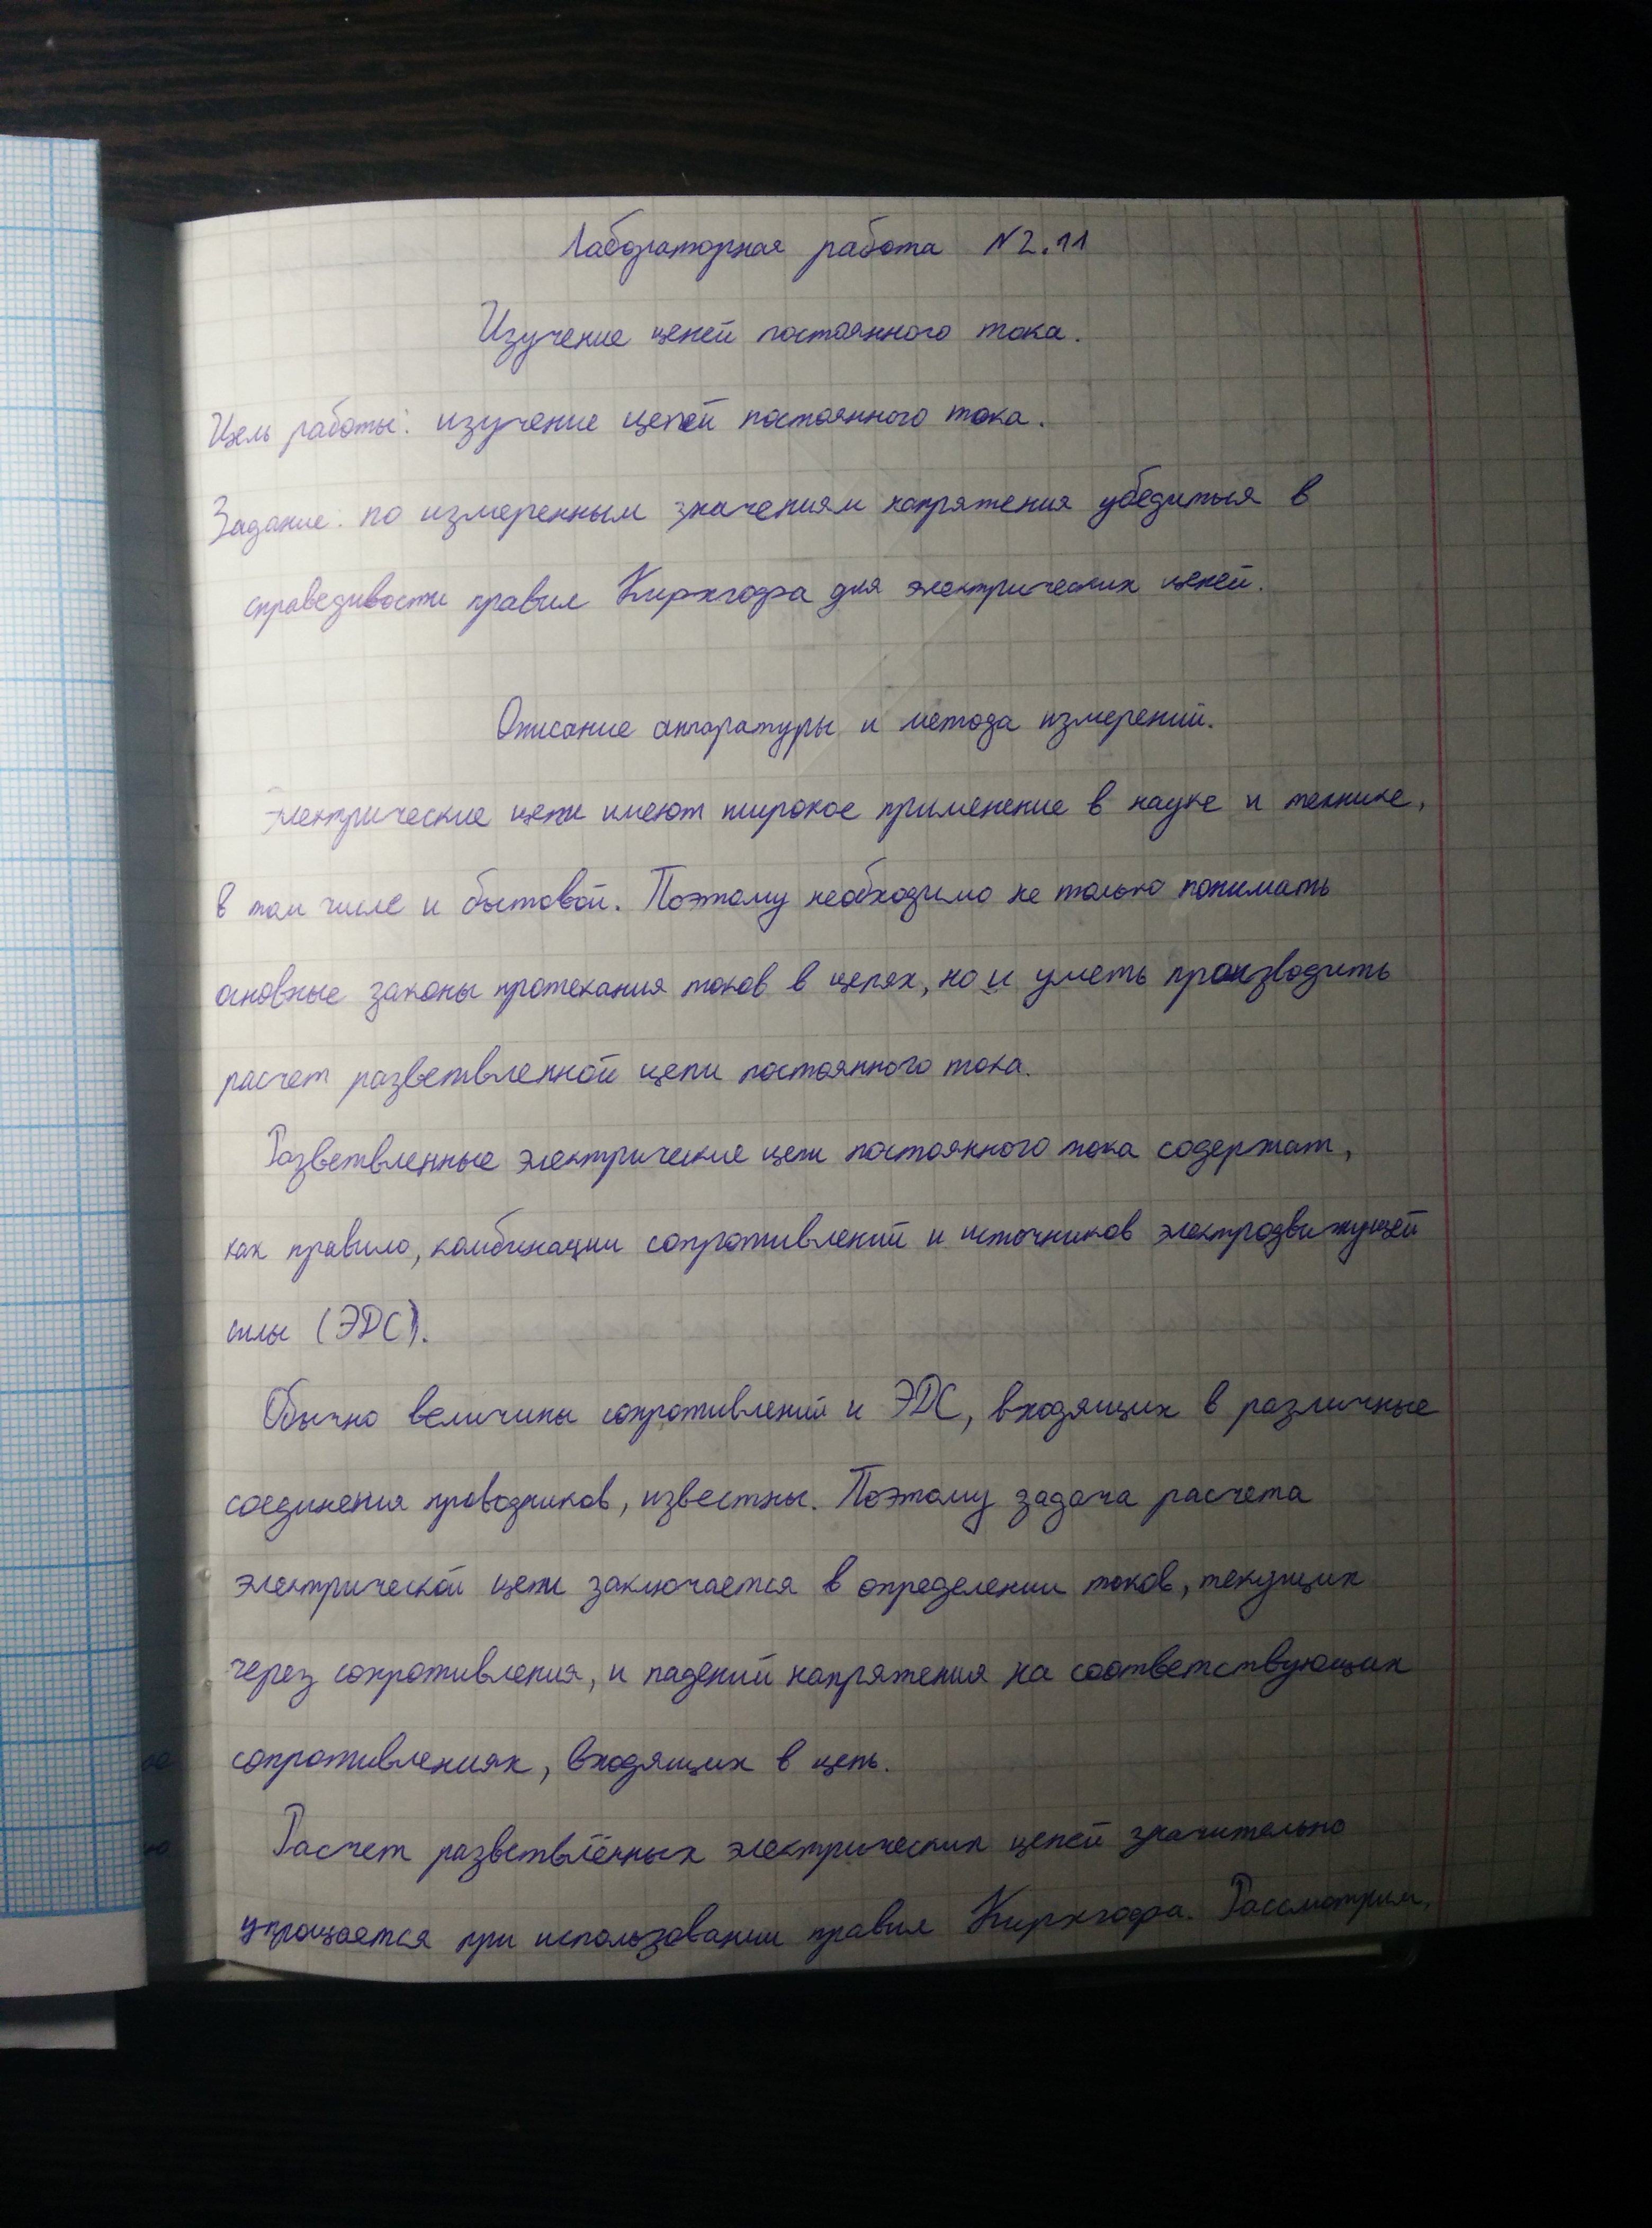 Лабораторная работа №2.11
Изучение цепей постоянного тока.
Цель работы: изучение цепей постоянного тока.
Задание: по измеренным значениям напряжения убедиться в
справедивости правил Кирхгофа для электрических цепей.
Описание аппаратуры и метода измерений.
Электрические цепи имеют широкое применение в науке и технике,
в том числе и бытовой. Поэтому необходимо не только понимать
основные законы протекания токов в цепях, но и уметь производить
расчет разветвленной цепи постоянного тока.
Разветвленные электрические цепи постоянного тока содержат,
как правило, комбинации сопротивлений и источников электродвижущей
силы (ЭДС).
Обычно величины сопротивлений и ЭДС, входящих в различные
соединения проводников, известны. Поэтому задача расчета
электрической цепи заключается в определении токов, текущих
через сопротивления, и падений напряжения на соответствующих
сопротивлениях, входящих в цепь.
Расчет разветвлённых электрических цепей значительно
упрощается при использовании правил Кирхгофа. Рассмотрим,